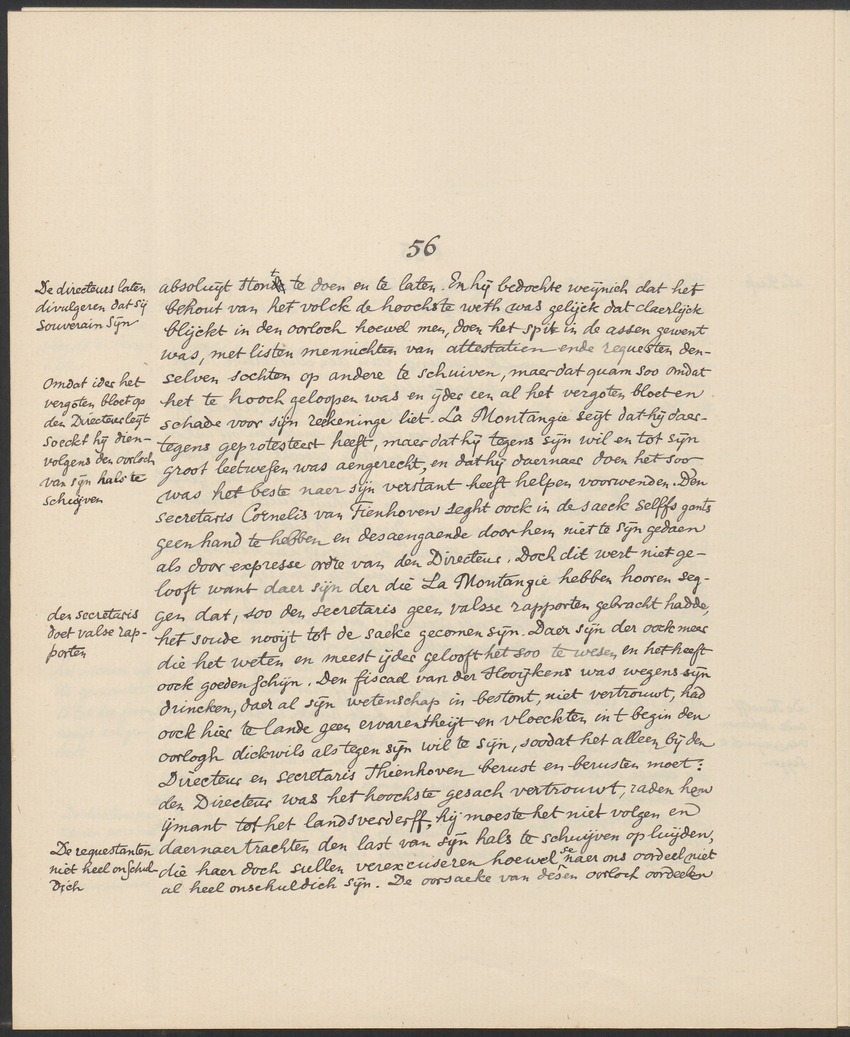 56
De directeurs laten
divulgeren dat sij
souverain sijn
absoluijt stont te doen en te laten. En hij bedochte weijnich dat het
behout van het volck de hoochste weth was gelijck dat claerlijck
blijckt in den oorloch hoewel men, doen het spit in de assen gewent
was, met listen mennichten van attestatien ende requesten den-
selven sochten op andere te schuiven, maer dat quam soo omdat
het te hooch geloopen was en ijder een al het vergoten bloet en
schade voor sijn reekeninge liet. La Montangie seijt dat hij daer-
tegens geprotesteert heeft, maer dat hij tegens sijn wil en tot sijn
groot leetwesen was aengerecht, en dat hij daernaer doen het soo
was het beste naer sijn verstant heeft helpen voorwenden. Den
secretaris Cornelis van Tienhoven seght oock in de saeck selffs gants
geen hand te hebben en desaengaende door hem niet te sijn gedaen
als door expresse ordre van den Directeur. Doch dit wert niet ge-
looft want daer sijn der die La Montangie hebben hooren seg-
gen dat, soo den secretaris geen valsse rapporten gebracht hadde,
het soude nooijt tot de saeke gecomen sijn. Daer sijn der oock meer
die het weten en meest ijder gelooft het soo te wesen en het heeft
oock goeden schijn. Den fiscael van der Hooijkens was wegens sijn
drincken, daer al sijn wetenschap in bestont, niet vertrouwt, had
oock hier te lande geen ervarentheijt en vloeckten int begin den
oorlogh dickwils als tegen sijn wil te sijn, soodat het alleen bij den
Directeur en secretaris Thienhoven berust en berusten moet:
den Directeur was het hoochste gesach vertrouwt, raden hem
ijmant tot het landsverderff, hij moeste het niet volgen en
daernaer trachten den last van sijn hals te schuijven op luijden,
die haer doch sullen verexcuseren hoewel se naer ons oordeel niet
al heel onschuldich sijn. De oorsaeke van desen oorloch oordeelen
Omdat ider het
vergoten bloet op
den Directeur leijt
soeckt hij dien-
volgens den oorloch
van sijn hals te
schuijven
der secretaris
doet valse rap-
porten
De requestanten
niet heel onschul-
dich